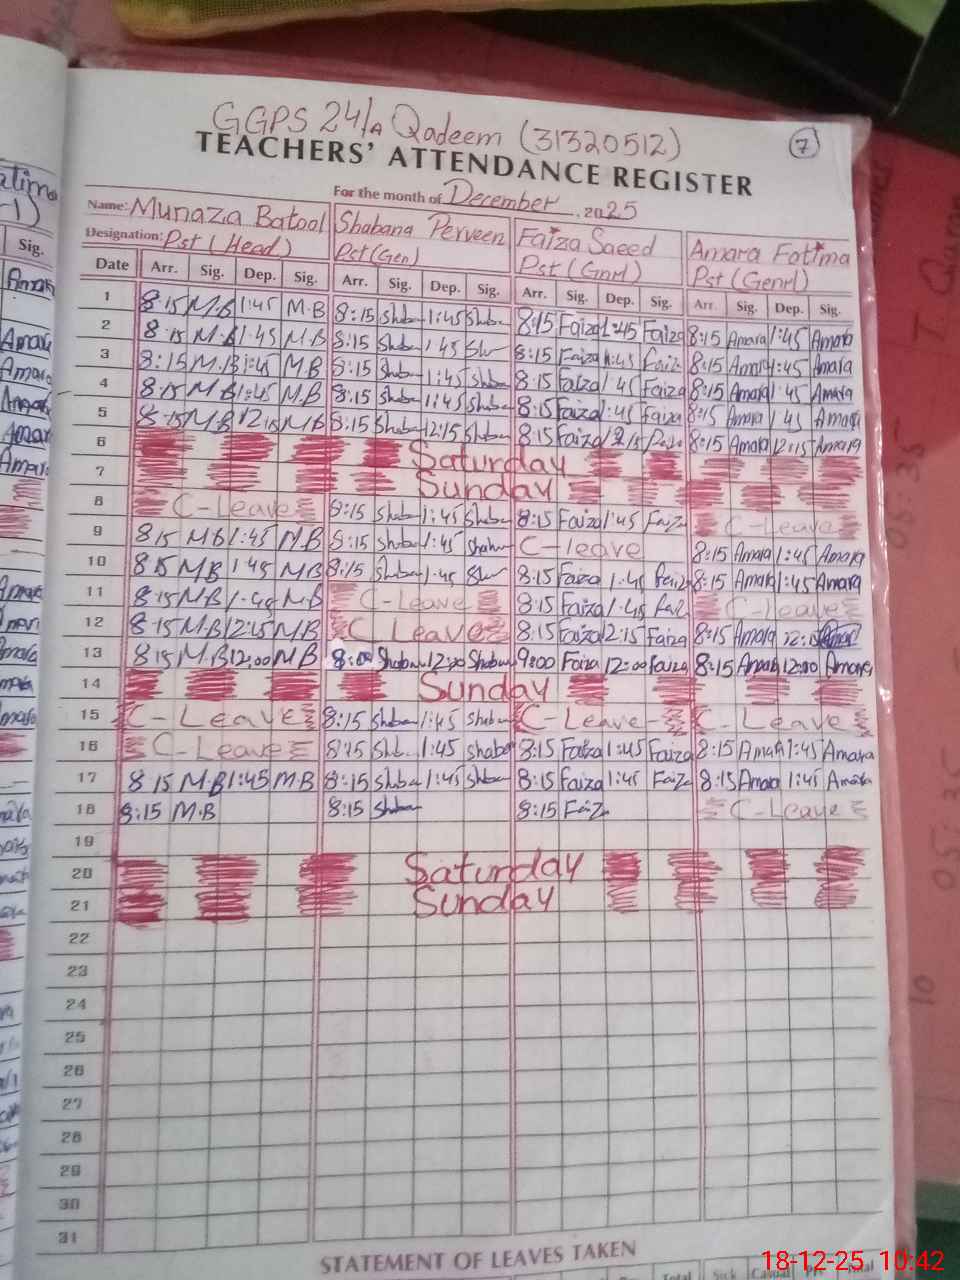 GGPS 24/A Qadeem (31320512)
7
TEACHERS' ATTENDANCE REGISTER
For the month of December 2025
Name: Munaza Batool Shabana Perveen Faiza Saeed Amara Fatima
Designation: Pst (Head) Pst (Gen) Pst (Gnrl) Pst (Genrl)
Date Arr. Sig. Dep. Sig. Arr. Sig. Dep. Sig. Arr. Sig. Dep. Sig. Arr. Sig. Dep. Sig.
1 8:15 M.B 1:45 M.B 8:15 Shaba 1:45 Shaba 8:15 Faiza 1:45 Faiza 8:15 Amara 1:45 Amara
2 8:15 M.B 1:45 M.B 8:15 Shaba 1:45 8:15 Faiza 1:45 Faiza 8:15 Amara 1:45 Amara
3 8:15 M.B 1:45 M.B 8:15 Shaba 1:45 Shaba 8:15 Faiza 1:45 Faiza 8:15 Amara 1:45 Amara
4 8:15 M.B 1:45 M.B 8:15 Shaba 1:45 Shaba 8:15 Faiza 1:45 Faiza 8:15 Amara 1:45 Amara
5 8:15 M.B 12:15 M.B 8:15 Shaba 12:15 Shaba 8:15 Faiza 12:15 8:15 Amara 12:15 Amara
6 Saturday
7 Sunday
8 C-Leave 8:15 Shaba 1:45 Shaba 8:15 Faiza 1:45 Faiz C-Leave
9 8:15 M.B 1:45 M.B 8:15 Shaba 1:45 Shaba C-leave 8:15 Amara 1:45 Amara
10 8:15 M.B 1:45 M.B 8:15 Shaba 1:45 8:15 Faiza 1:45 Faiz 8:15 Amara 1:45 Amara
11 8:15 M.B 1:45 M.B C-Leave 8:15 Faiza 1:45 Fai C-Leave
12 8:15 M.B 12:15 M.B C Leave 8:15 Faiza 12:15 Faiza 8:15 Amara 12:15
13 8:15 M.B 12:00 M.B Shaban 12:00 Shaban 9:00 Faiza 12:00 Faiza 8:15 Amara 12:00 Amara
14 Sunday
15 C-Leave 8:15 Shaba 1:45 Shaban C-Leave C-Leave
16 C-Leave 8:15 Shb 1:45 Shaba 8:15 Faiza 1:45 Faiza 8:15 Amara 1:45 Amara
17 8:15 M.B 1:45 M.B 8:15 Shaba 1:45 Shaba 8:15 Faiza 1:45 Faiz 8:15 Amara 1:45 Amara
18 8:15 M.B 8:15 Shaba 8:15 Faiz C-Leave
19
20 Saturday
21 Sunday
22
23
24
25
26
27
28
29
30
31
STATEMENT OF LEAVES TAKEN
Total Sick Casual Total
18-12-25 10:42